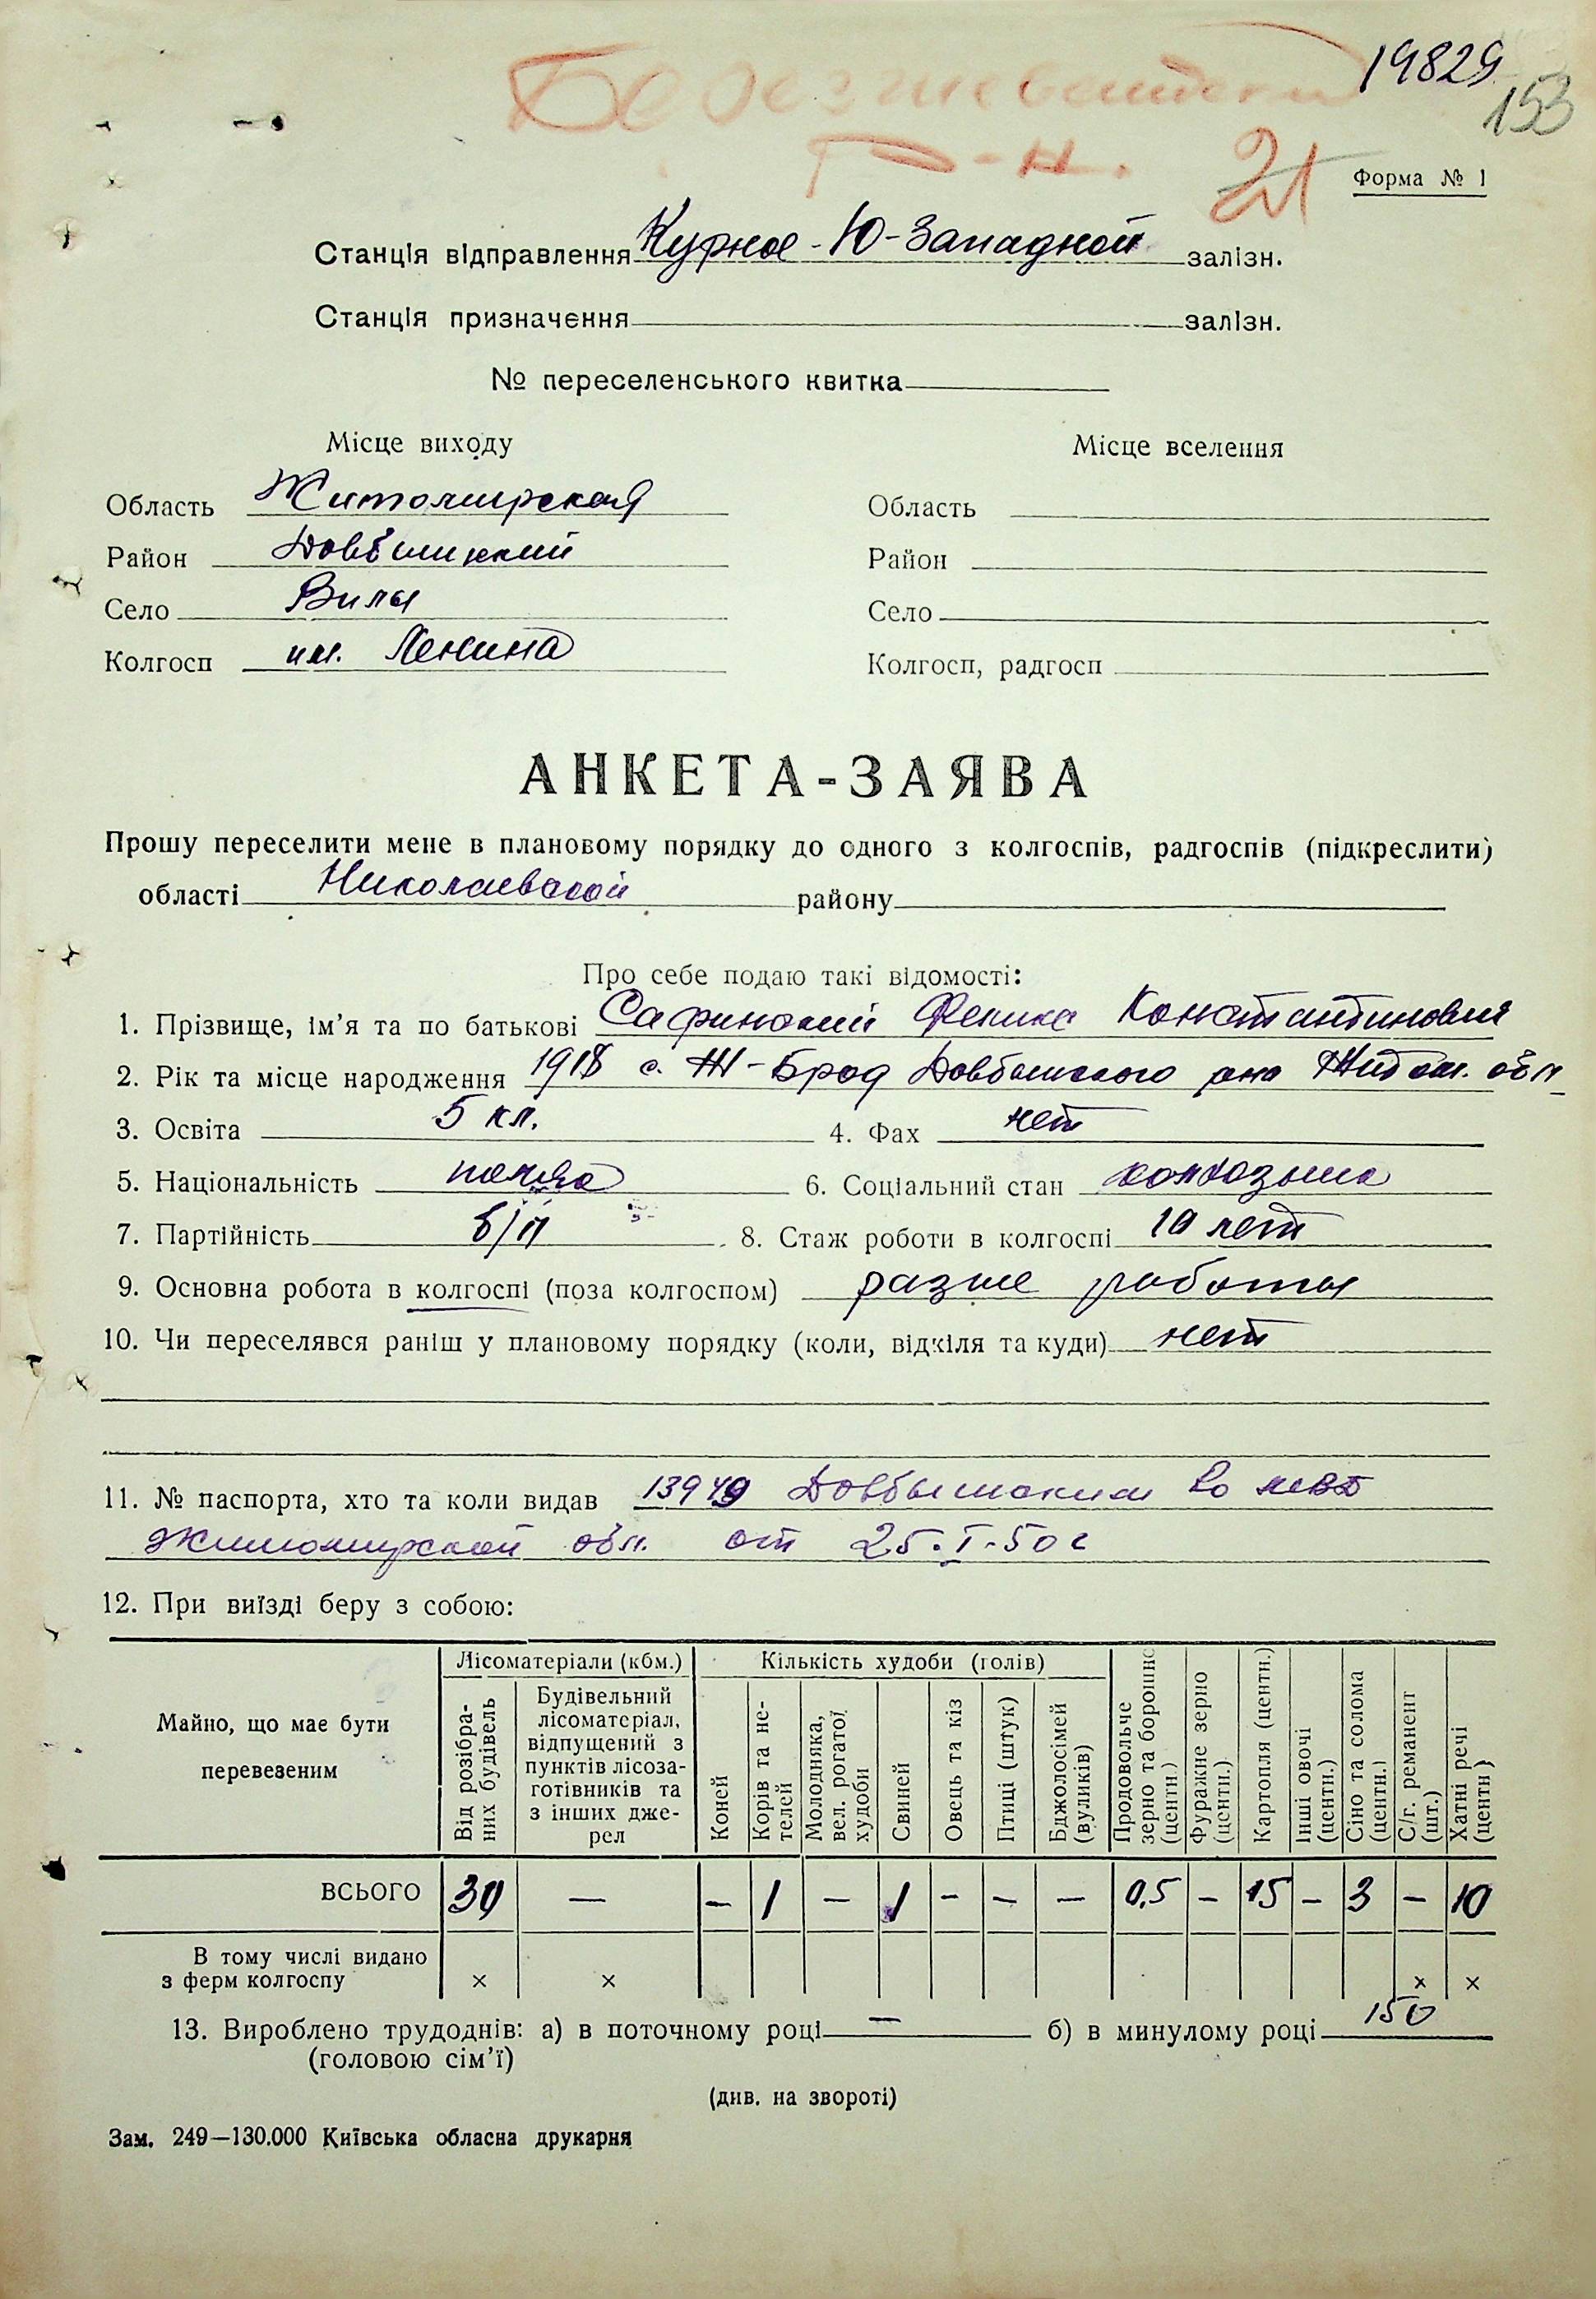 19829
153
р-н.
Форма № 1
Станція відправлення Курное - Ю-Западной залізн.
Станція призначення залізн.
№ переселенського квитка
Місце виходу Місце вселення
Область Житомирская Область
Район Довбышский Район
Село Вилы Село
Колгосп им. Ленина Колгосп, радгосп
АНКЕТА-ЗАЯВА
Прошу переселити мене в плановому порядку до одного з колгоспів, радгоспів (підкреслити)
області Николаевской району
Про себе подаю такі відомості:
1. Прізвище, ім'я та по батькові Сафинский Феликс Константинович
2. Рік та місце народження 1918 с. -Брод Довбышского рна Житом. обл
3. Освіта 5 кл. 4. Фах нет
5. Національність 6. Соціальний стан
7. Партійність б/п 8. Стаж роботи в колгоспі 10 лет
9. Основна робота в колгоспі (поза колгоспом) разные работы
10. Чи переселявся раніш у плановому порядку (коли, відкіля та куди) нет
11. № паспорта, хто та коли видав 13949 Довбышским Ро
Житомирской обл. от 25.I.50 г
12. При виїзді беру з собою:
Майно, що має бути перевезеним
Лісоматеріали (кбм.)
Від розібраних будівель
Будівельний лісоматеріал, відпущений з пунктів лісозаготівників та з інших джерел
Кількість худоби (голів)
Коней
Корів та нетелей
Молодняка, вел. рогатої худоби
Свиней
Овець та кіз
Птиці (штук)
Бджолосімей (вуликів)
Продовольче зерно та борошно (центн.)
Фуражне зерно (центн.)
Картопля (центн.)
Інші овочі (центн.)
Сіно та солома (центн.)
С/г. реманент (шт.)
Хатні речі (центн)
ВСЬОГО 30 — – 1 – 1 – – – 0,5 – 15 – 3 – 10
В тому числі видано
з ферм колгоспу × × × ×
13. Вироблено трудоднів: а) в поточному році — б) в минулому році 150
(головою сім'ї)
(див. на звороті)
Зам. 249—130.000 Київська обласна друкарня